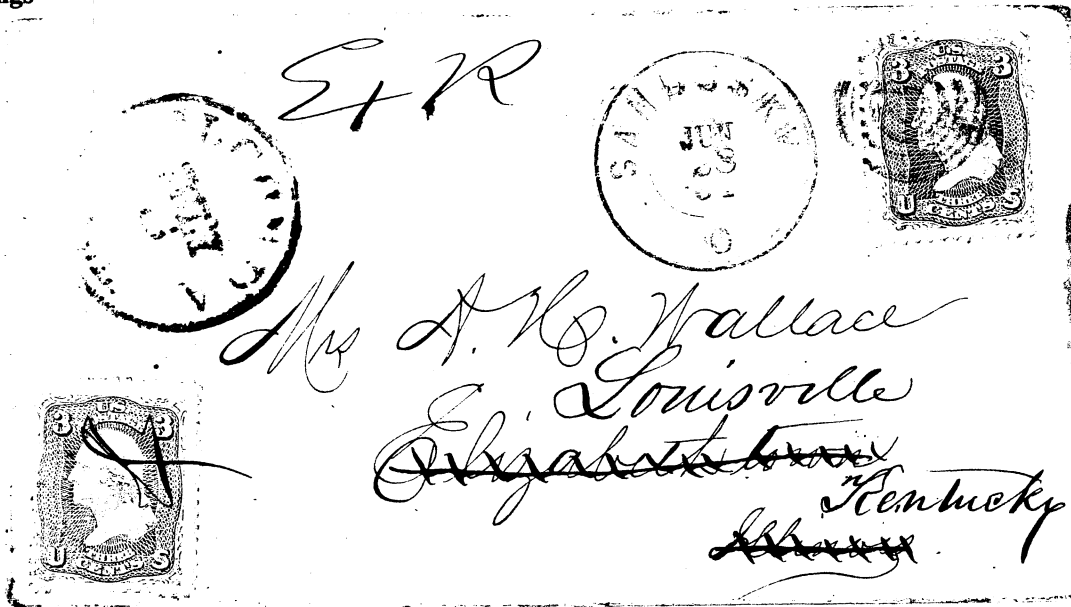 ngs
E + R
SANDUSKY
JUN
28
O
U.S.
3 3
U THREE CENTS S
Mrs A. H. Wallace
Louisville
Elizabethtown
Kentucky
U.S.
3 3
U THREE CENTS S